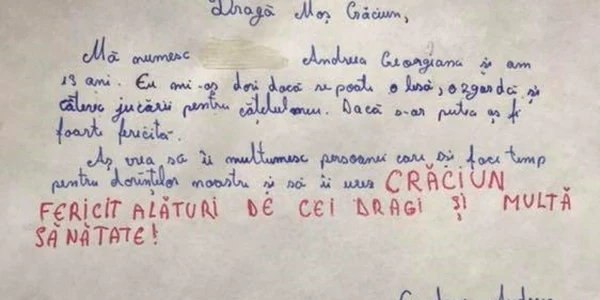 Dragă Moș Crăciun,
Mă numesc Andreea Georgiana și am
13 ani. Eu mi-aș dori dacă se poate o lesă, o zgardă și
câteva jucării pentru cățelul meu. Dacă s-ar putea aș fi
foarte fericită.
Aș vrea să îi mulțumesc persoanei care își face timp
pentru dorințelor noastre și să îi urez CRĂCIUN
FERICIT ALĂTURI DE CEI DRAGI ȘI MULTĂ
SĂNĂTATE!